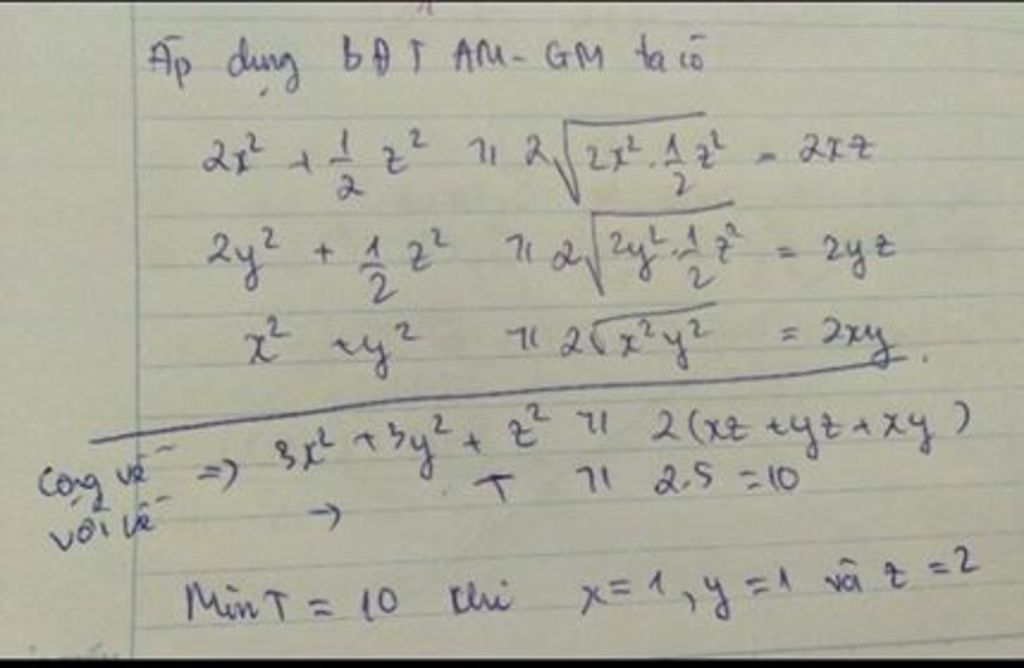 Áp dụng BĐT AM-GM ta có
2x² + 1/2 z² ≥ 2√(2x² · 1/2 z²) = 2xz
2y² + 1/2 z² ≥ 2√(2y² · 1/2 z²) = 2yz
x² + y² ≥ 2√(x²y²) = 2xy.
Cộng vế => 3x² + 3y² + z² ≥ 2(xz + yz + xy)
với vế → T ≥ 2.5 = 10
Min T = 10 khi x = 1, y = 1 và z = 2